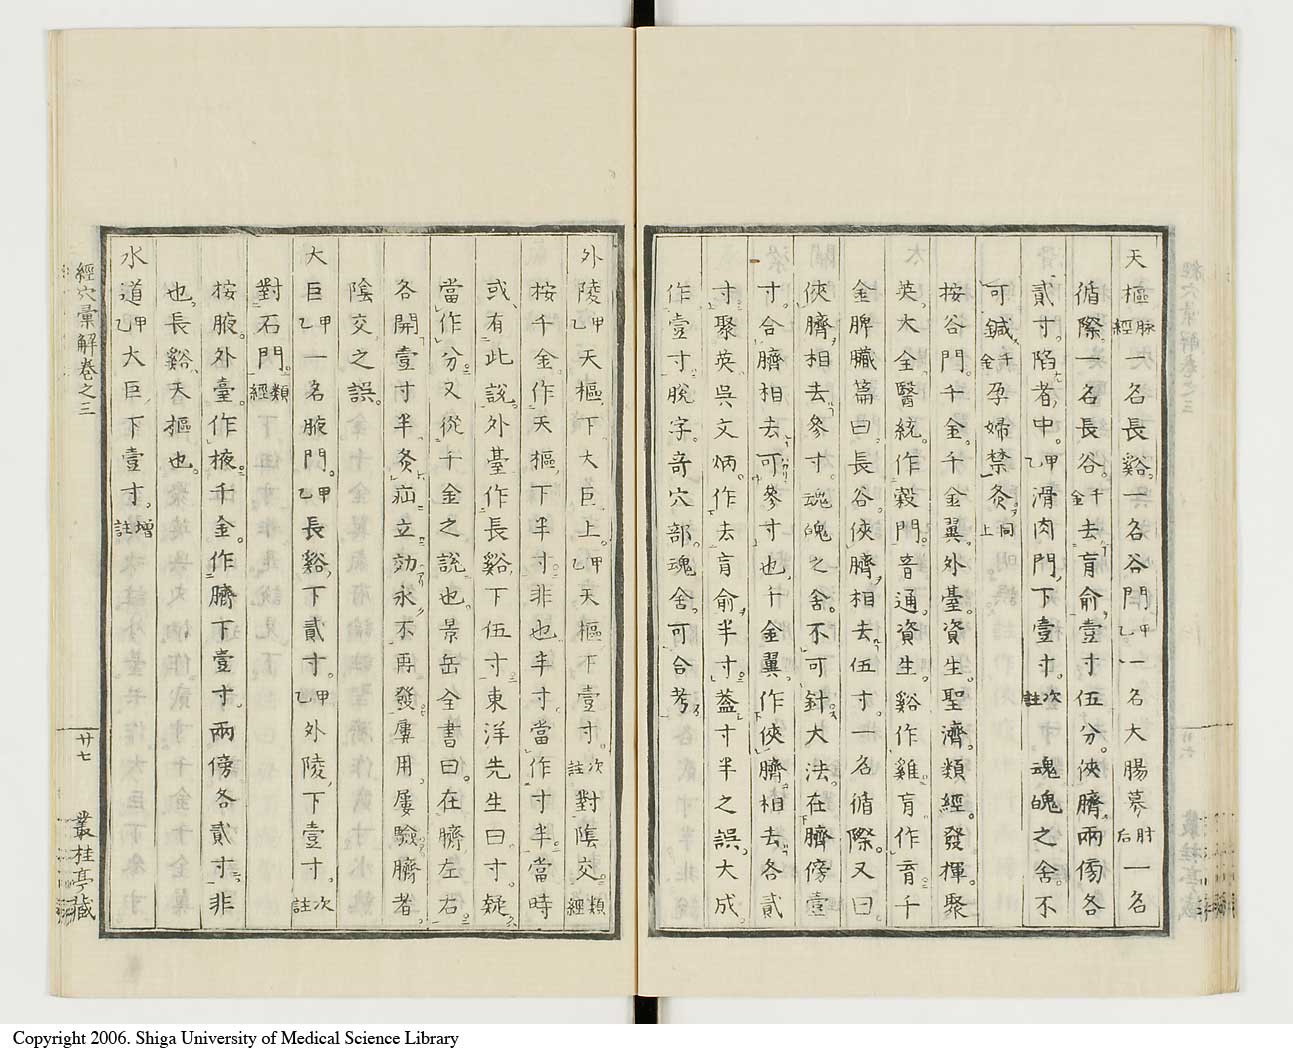 天樞脉經一名長谿。一名谷門甲乙一名大腸募肘后一名
循際一名長谷。千金去肓俞壹寸伍分。俠臍兩傍各
貳寸。陷者中。甲乙滑肉門下壹寸。次註魂魄之舍。不
可鍼千金孕婦禁灸。同上
按谷門。千金。千金翼。外臺。資生。聖濟。類經。發揮。聚
英。大全。醫統。作穀門。音通。資生。谿作雞。肓作育。千
金脾臟篇曰。長谷。俠臍相去伍寸。一名循際。又曰。
俠臍相去參寸。魂魄之舍。不可針。大法在臍傍壹
寸。合臍相去可參寸也。千金翼。作俠臍相去各貳
寸。聚英。吳文炳。作去肓俞半寸。蓋寸半之誤。大成。
作壹寸。脫字。奇穴部。魂舍。可合考。
外陵甲乙天樞下。大巨上。甲乙天樞下壹寸。次註對陰交。類經
按千金。作天樞下半寸。非也。半寸。當作寸半。當時
或有此說。外臺。作長谿下伍寸。東洋先生曰。寸疑
當作分。又從千金之說也。景岳全書曰。在臍左右
各開壹寸半。灸疝立効。永不再發。屢用屢驗。臍者。
陰交之誤。
大巨甲乙一名腋門。甲乙長谿下貳寸。甲乙外陵下壹寸。次註
對石門。類經
按腋。外臺。作掖。千金。作臍下壹寸。兩傍各貳寸。非
也。長谿。天樞也。
水道甲乙大巨下壹寸。增註
經穴彙解卷之三
廿七
叢桂亭藏
Copyright 2006. Shiga University of Medical Science Library